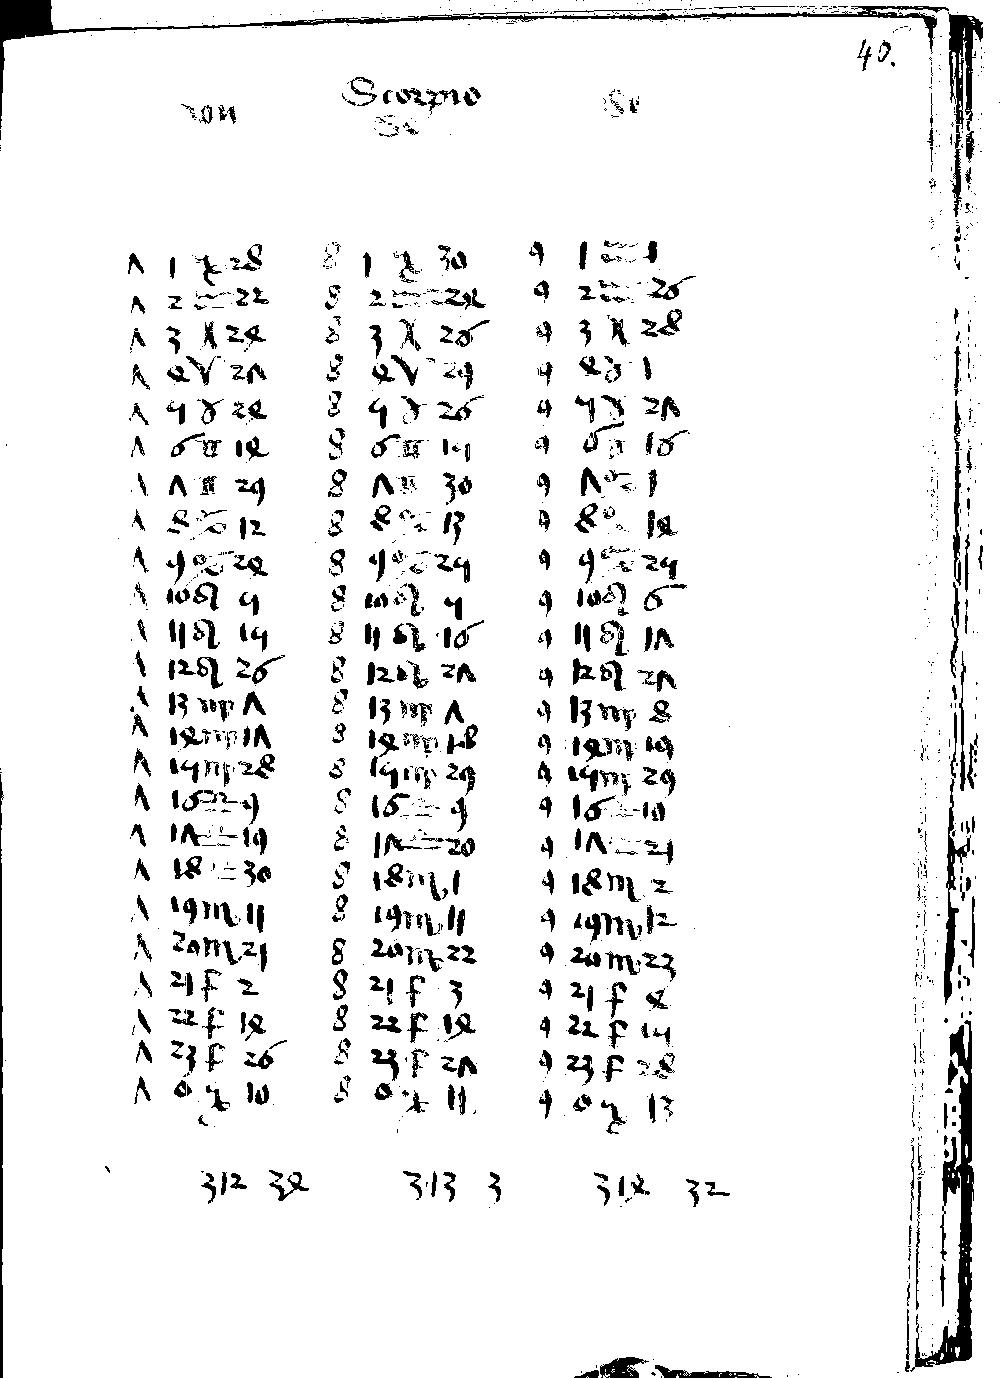 Scorpio
7 1 ♑ 28 8 1 ♑ 30 9 1 ♒ 1
7 2 ♒ 22 8 2 ♒ 24 9 2 ♒ 26
7 3 ♓ 24 8 3 ♓ 26 9 3 ♓ 28
7 4 ♈ 27 8 4 ♈ 29 9 4 ♉ 1
7 5 ♉ 24 8 5 ♉ 26 9 5 ♉ 27
7 6 ♊ 14 8 6 ♊ 15 9 6 ♊ 16
7 7 ♊ 29 8 7 ♊ 30 9 7 ♋ 1
7 8 ♋ 12 8 8 ♋ 13 9 8 ♋ 14
7 9 ♋ 24 8 9 ♋ 25 9 9 ♋ 25
7 10 ♌ 5 8 10 ♌ 5 9 10 ♌ 6
7 11 ♌ 15 8 11 ♌ 16 9 11 ♌ 17
7 12 ♌ 26 8 12 ♌ 27 9 12 ♌ 27
7 13 ♍ 7 8 13 ♍ 7 9 13 ♍ 8
7 14 ♍ 17 8 14 ♍ 18 9 14 ♍ 19
7 15 ♍ 28 8 15 ♍ 29 9 15 ♍ 29
7 16 ♎ 9 8 16 ♎ 9 9 16 ♎ 10
7 17 ♎ 19 8 17 ♎ 20 9 17 ♎ 21
7 18 ♎ 30 8 18 ♏ 1 9 18 ♏ 2
7 19 ♏ 11 8 19 ♏ 11 9 19 ♏ 12
7 20 ♏ 21 8 20 ♏ 22 9 20 ♏ 23
7 21 ♐ 2 8 21 ♐ 3 9 21 ♐ 4
7 22 ♐ 14 8 22 ♐ 14 9 22 ♐ 15
7 23 ♐ 26 8 23 ♐ 27 9 23 ♐ 28
7 0 ♑ 10 8 0 ♑ 11 9 0 ♑ 13
312 34 313 3 314 32